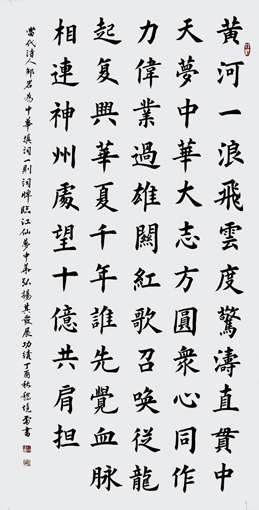 黃河一浪飛雲度驚濤直貫中
天夢中華大志方圓衆心同作
力偉業過雄關紅歌召唤從龍
起复興華夏千年誰先覺血脉
相連神州處望十億共肩担
當代詩人邹君為中華填詞一則詞牌臨江仙夢中華弘揚其發展功績丁酉秋